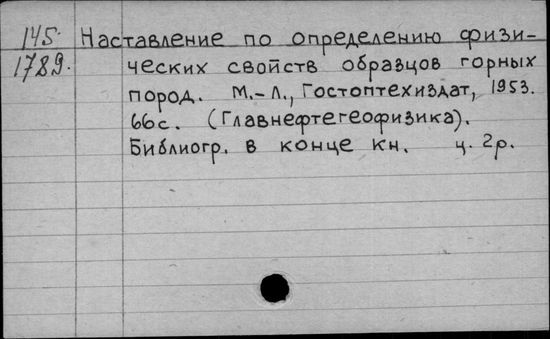 145. Наставление по определению физи-
1789. ческих свойств образцов горных
пород. М.-Л., Гостоптехиздат, 1953.
66с. (Главнефтегеофизика).
Библиогр. в конце кн. ц. 2р.